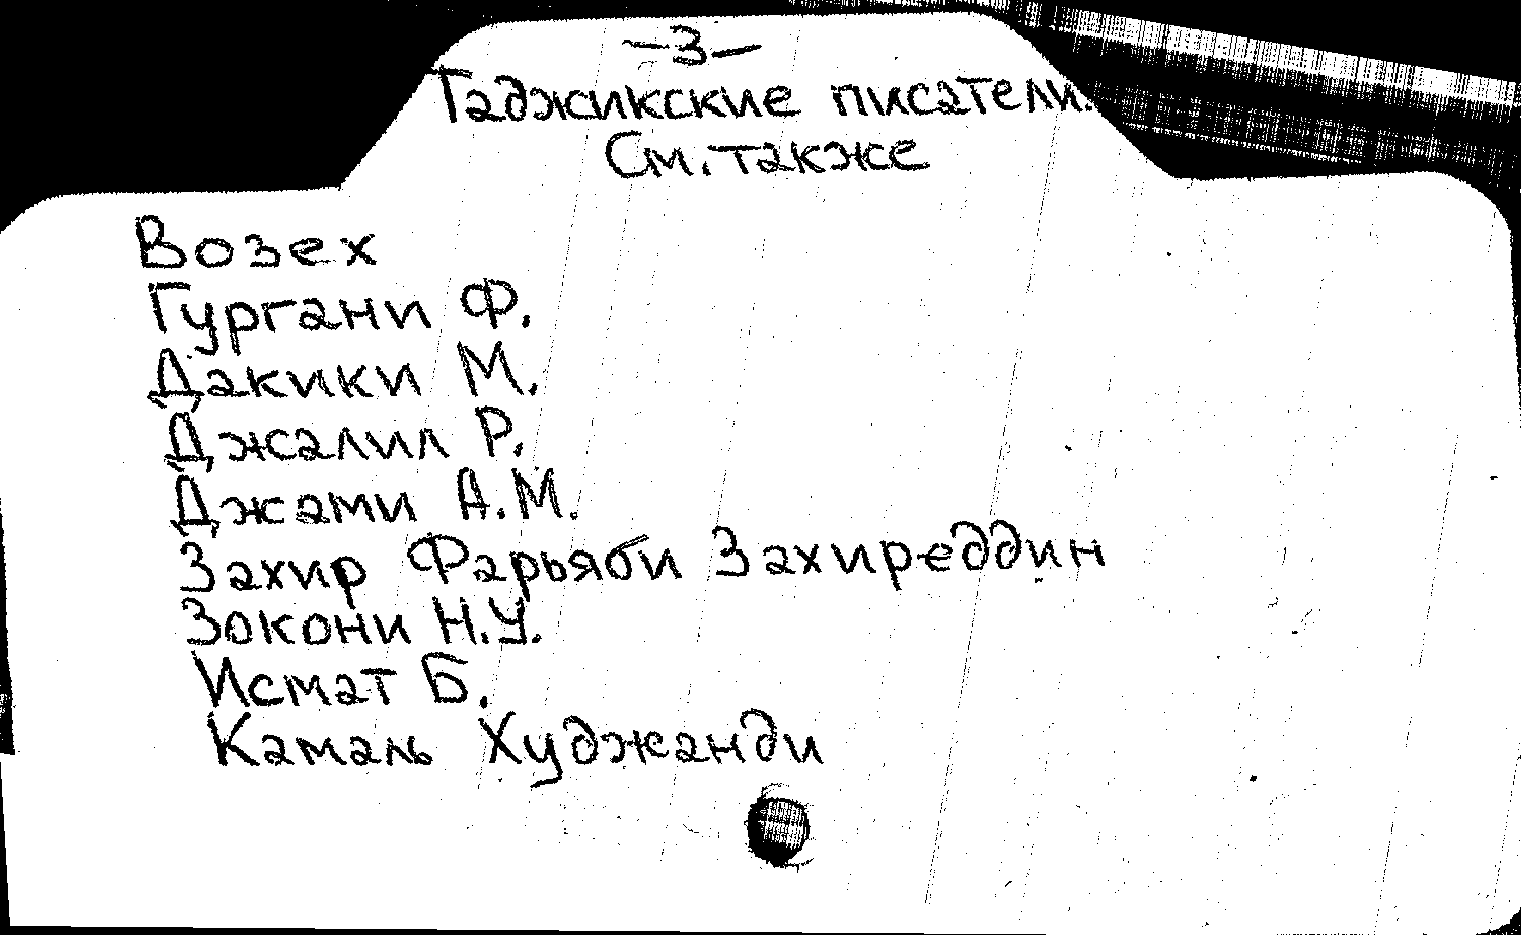 -3-
Таджикские писатели.
См. также
Возех
Гургани Ф.
Дакики М.
Джалил Р.
Джами А.М.
Захир Фарьяби Захиреддин
Зокони Н.У.
Исмат Б.
Камаль Худжанди